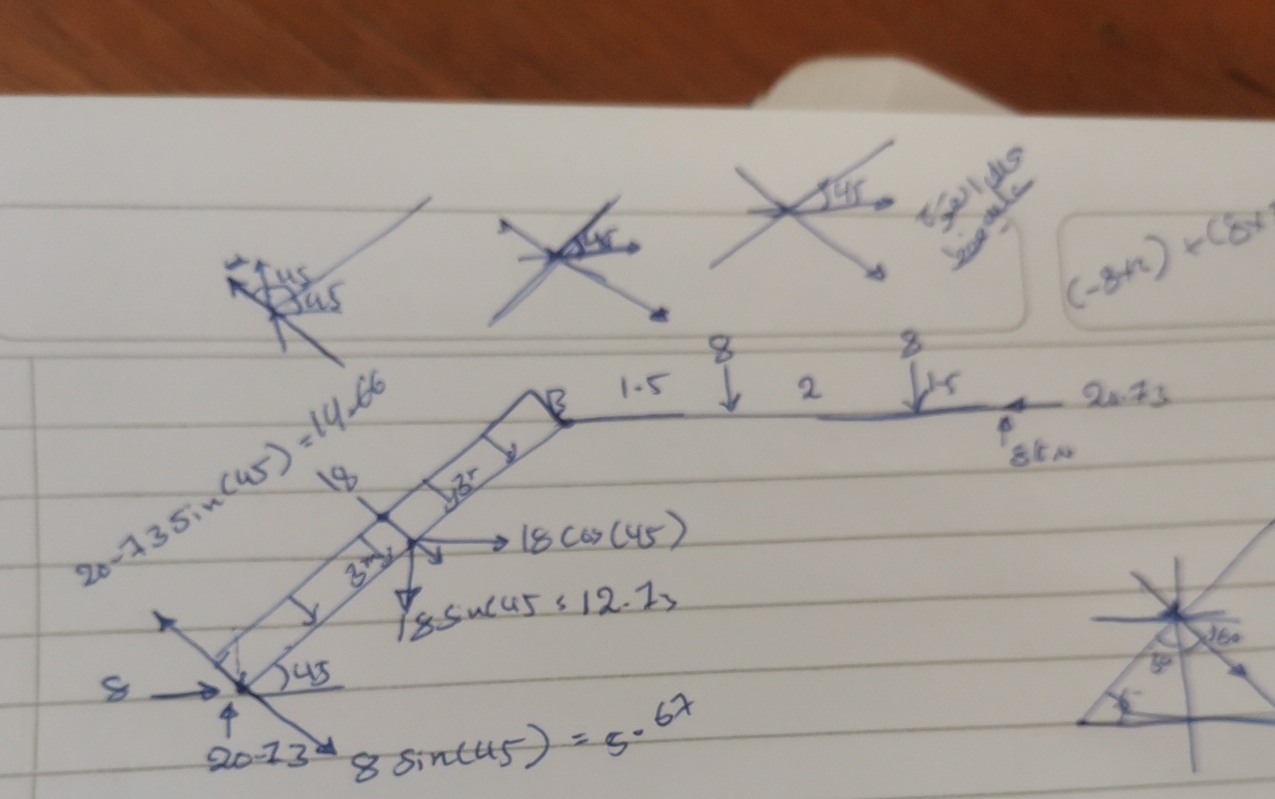 45
45
45
45
(-8×2) + (8×
20-73 sin(45) = 14.66
18
B
1.5
8
2
8
1.5
20.73
8kN
3m
3m
18 cos(45)
18 sin(45 = 12.73
8
45
20-73
8 sin(45) = 5.67